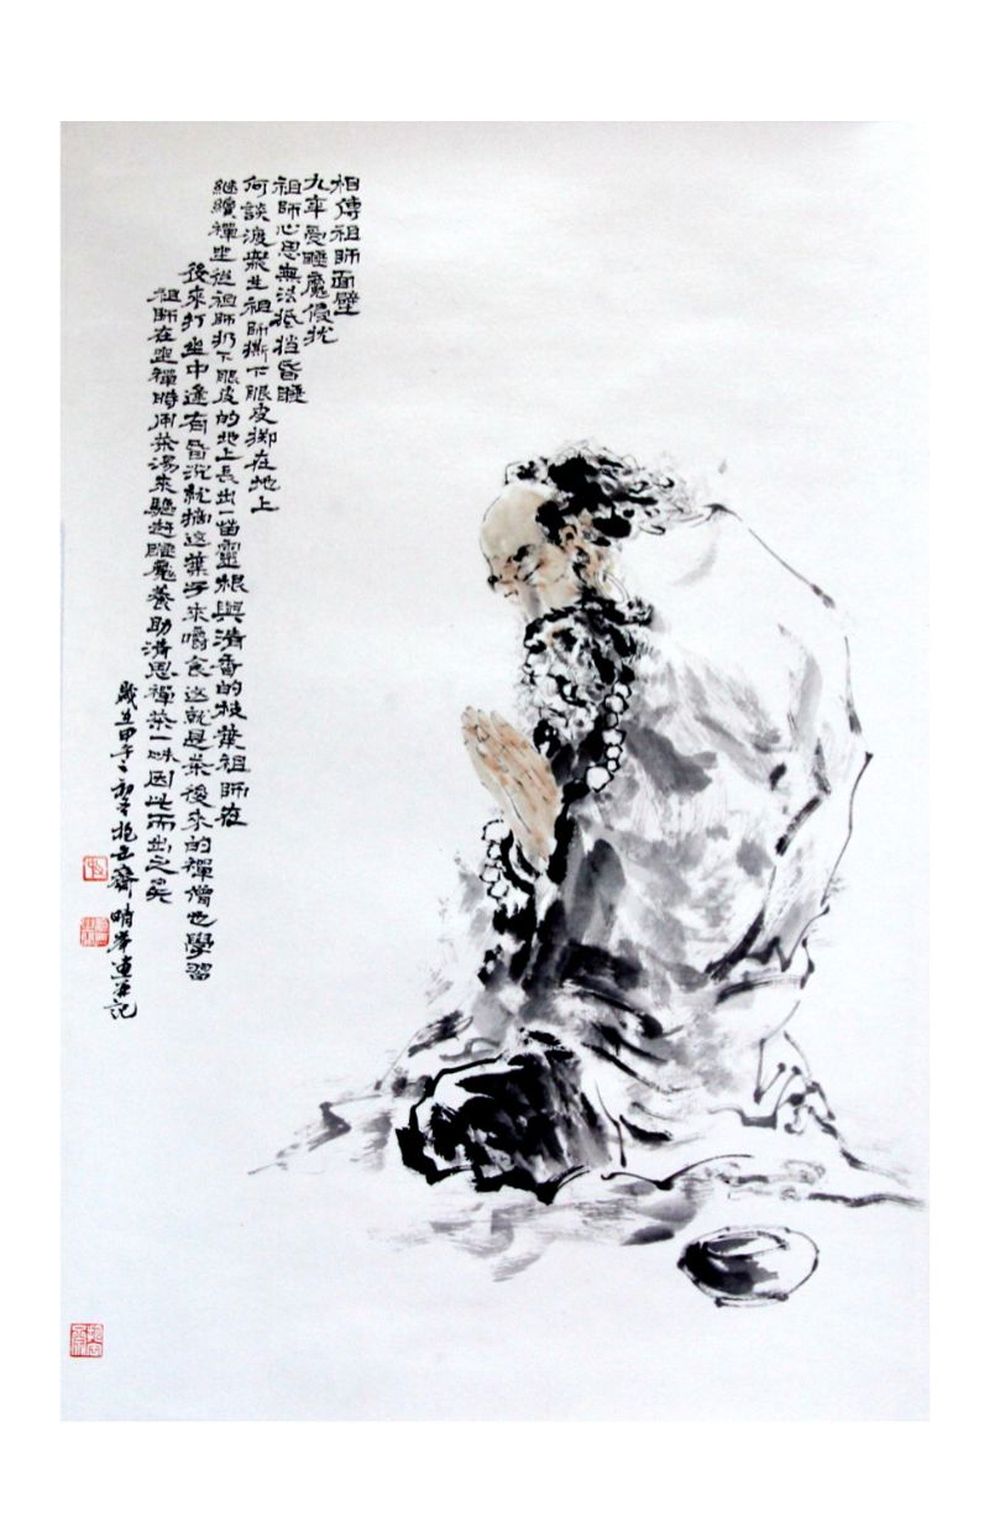 相傳祖師面壁
九年受睡魔侵扰
祖師心思無法抵挡昏睡
何談渡衆生祖師撕下眼皮掷在地上
继續禪坐從祖師扔下眼皮的地上長出一苗靈根與清香的枝葉祖師在
後來打坐中逢有昏沉就摘這葉子來嚼食這就是茶後來的禪僧也學習
祖師在坐禪時用茶湯來驅赶睡魔養助清思禪茶一味因此而出之矣
歲在甲午 齋晴 畫并記